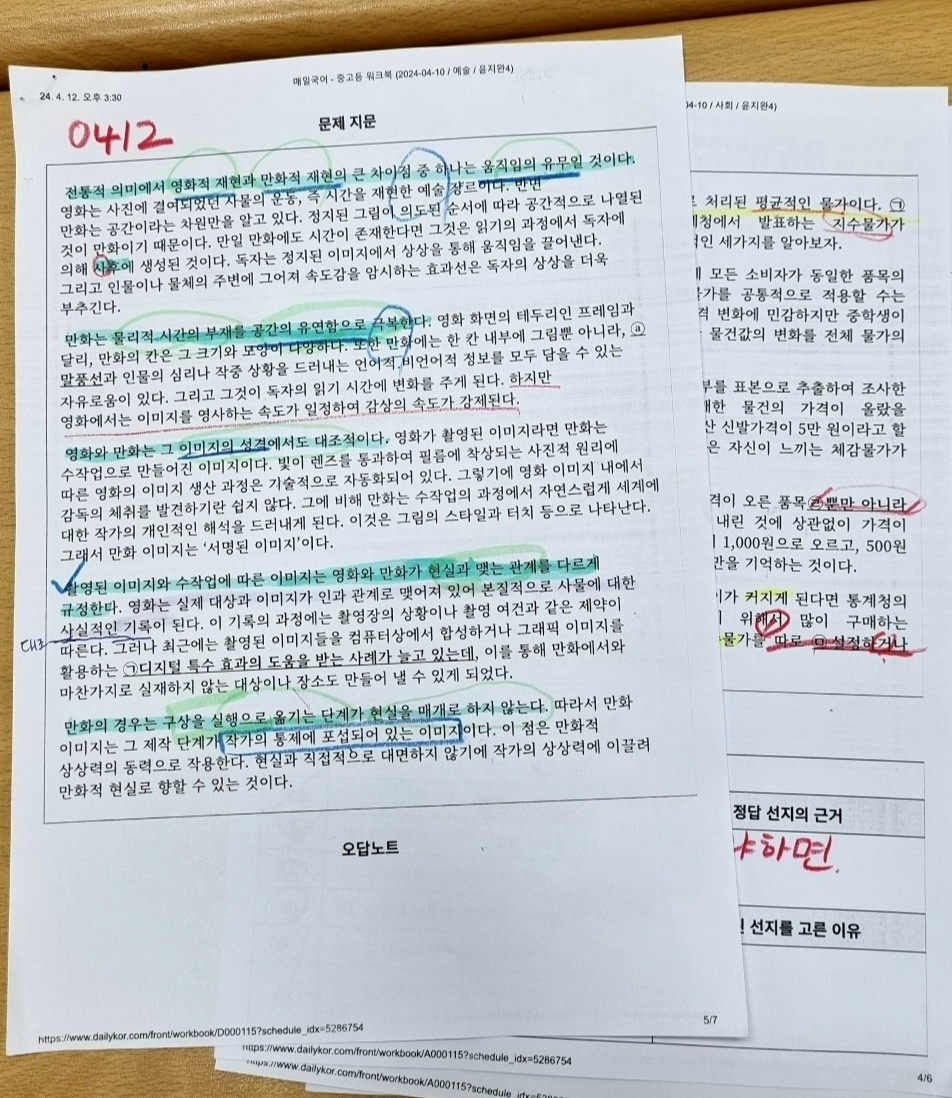 매일국어 - 중고등 워크북 (2024-04-10 / 예술 / 윤지완4)
24. 4. 12. 오후 3:30
0412
문제 지문
전통적 의미에서 영화적 재현과 만화적 재현의 큰 차이점 중 하나는 움직임의 유무일 것이다.
영화는 사진에 결여되었던 사물의 운동, 즉 시간을 재현한 예술 장르이다. 반면
만화는 공간이라는 차원만을 알고 있다. 정지된 그림이 의도된 순서에 따라 공간적으로 나열된
것이 만화이기 때문이다. 만일 만화에도 시간이 존재한다면 그것은 읽기의 과정에서 독자에
의해 사후에 생성된 것이다. 독자는 정지된 이미지에서 상상을 통해 움직임을 끌어낸다.
그리고 인물이나 물체의 주변에 그어져 속도감을 암시하는 효과선은 독자의 상상을 더욱
부추긴다.
만화는 물리적 시간의 부재를 공간의 유연함으로 극복한다. 영화 화면의 테두리인 프레임과
달리, 만화의 칸은 그 크기와 모양이 다양하다. 또한 만화에는 한 칸 내부에 그림뿐 아니라, ⓐ
말풍선과 인물의 심리나 작중 상황을 드러내는 언어적·비언어적 정보를 모두 담을 수 있는
자유로움이 있다. 그리고 그것이 독자의 읽기 시간에 변화를 주게 된다. 하지만
영화에서는 이미지를 영사하는 속도가 일정하여 감상의 속도가 강제된다.
영화와 만화는 그 이미지의 성격에서도 대조적이다. 영화가 촬영된 이미지라면 만화는
수작업으로 만들어진 이미지이다. 빛이 렌즈를 통과하여 필름에 착상되는 사진적 원리에
따른 영화의 이미지 생산 과정은 기술적으로 자동화되어 있다. 그렇기에 영화 이미지 내에서
감독의 체취를 발견하기란 쉽지 않다. 그에 비해 만화는 수작업의 과정에서 자연스럽게 세계에
대한 작가의 개인적인 해석을 드러내게 된다. 이것은 그림의 스타일과 터치 등으로 나타난다.
그래서 만화 이미지는 ‘서명된 이미지’이다.
촬영된 이미지와 수작업에 따른 이미지는 영화와 만화가 현실과 맺는 관계를 다르게
규정한다. 영화는 실제 대상과 이미지가 인과 관계로 맺어져 있어 본질적으로 사물에 대한
사실적인 기록이 된다. 이 기록의 과정에는 촬영장의 상황이나 촬영 여건과 같은 제약이
따른다. 그러나 최근에는 촬영된 이미지들을 컴퓨터상에서 합성하거나 그래픽 이미지를
활용하는 ㉠디지털 특수 효과의 도움을 받는 사례가 늘고 있는데, 이를 통해 만화에서와
마찬가지로 실재하지 않는 대상이나 장소도 만들어 낼 수 있게 되었다.
만화의 경우는 구상을 실행으로 옮기는 단계가 현실을 매개로 하지 않는다. 따라서 만화
이미지는 그 제작 단계가 작가의 통제에 포섭되어 있는 이미지이다. 이 점은 만화적
상상력의 동력으로 작용한다. 현실과 직접적으로 대면하지 않기에 작가의 상상력에 이끌려
만화적 현실로 향할 수 있는 것이다.
오답노트
5/7
https://www.dailykor.com/front/workbook/D000115?schedule_idx=5286754
04-10 / 사회 / 윤지완4)
처리된 평균적인 물가이다. ㉠
발표하는 지수물가가
세가지를 알아보자.
모든 소비자가 동일한 품목의
공통적으로 적용할 수는
변화에 민감하지만 중학생이
물건값의 변화를 전체 물가의
표본으로 추출하여 조사한
물건의 가격이 올랐을
신발가격이 5만 원이라고 할
자신이 느끼는 체감물가가
오른 품목 뿐만 아니라
내린 것에 상관없이 가격이
1,000원으로 오르고, 500원
기억하는 것이다.
커지게 된다면 통계청의
위해서 많이 구매하는
따로 설정하거나
정답 선지의 근거
하면.
선지를 고른 이유
https://www.dailykor.com/front/workbook/A000115?schedule_idx=5286754
4/6
.dailykor.com/front/workbook/A000115?schedule_idx=